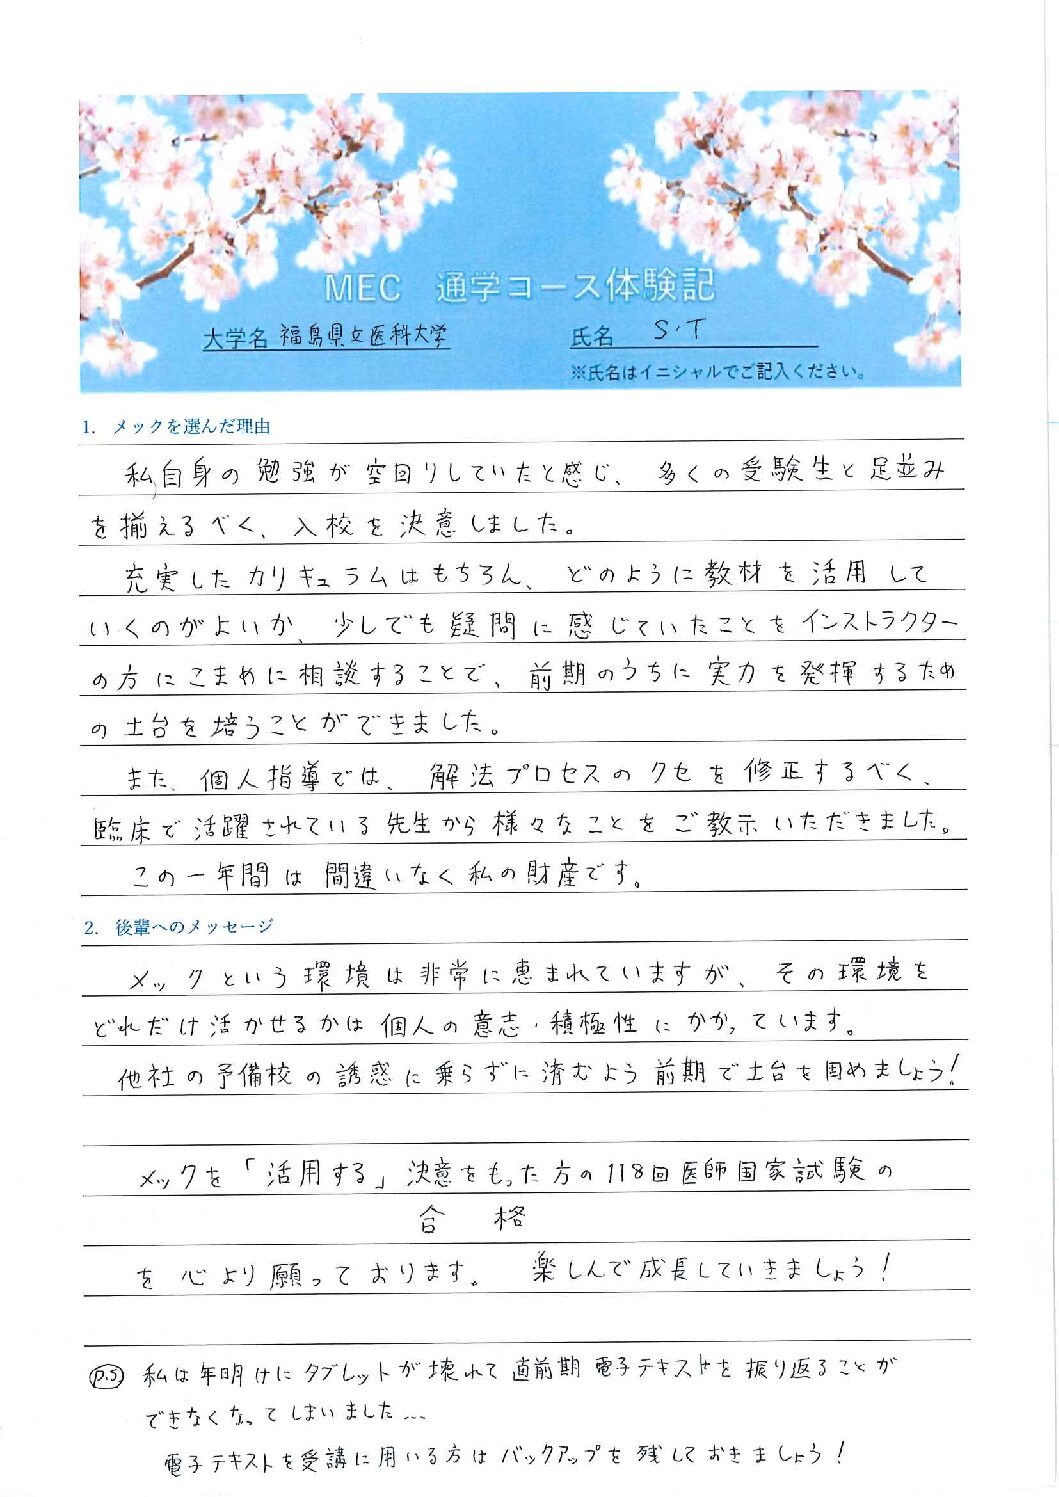 MEC 通学コース体験記
大学名 福島県立医科大学 氏名 S.T
※氏名はイニシャルでご記入ください。
1. メックを選んだ理由
私自身の勉強が空回りしていたと感じ、多くの受験生と足並み
を揃えるべく、入校を決意しました。
充実したカリキュラムはもちろん、どのように教材を活用して
いくのがよいか、少しでも疑問に感じていたことをインストラクター
の方にこまめに相談することで、前期のうちに実力を発揮するため
の土台を培うことができました。
また、個人指導では、解法プロセスのクセを修正するべく、
臨床で活躍されている先生から様々なことをご教示いただきました。
この一年間は間違いなく私の財産です。
2. 後輩へのメッセージ
メックという環境は非常に恵まれていますが、その環境を
どれだけ活かせるかは個人の意志・積極性にかかっています。
他社の予備校の誘惑に乗らずに済むよう前期で土台を固めましょう!
メックを「活用する」決意をもった方の118回医師国家試験の
合格
を心より願っております。 楽しんで成長していきましょう!
P.S 私は年明けにタブレットが壊れて直前期電子テキストを振り返ることが
できなくなってしまいました...
電子テキストを受講に用いる方はバックアップを残しておきましょう!